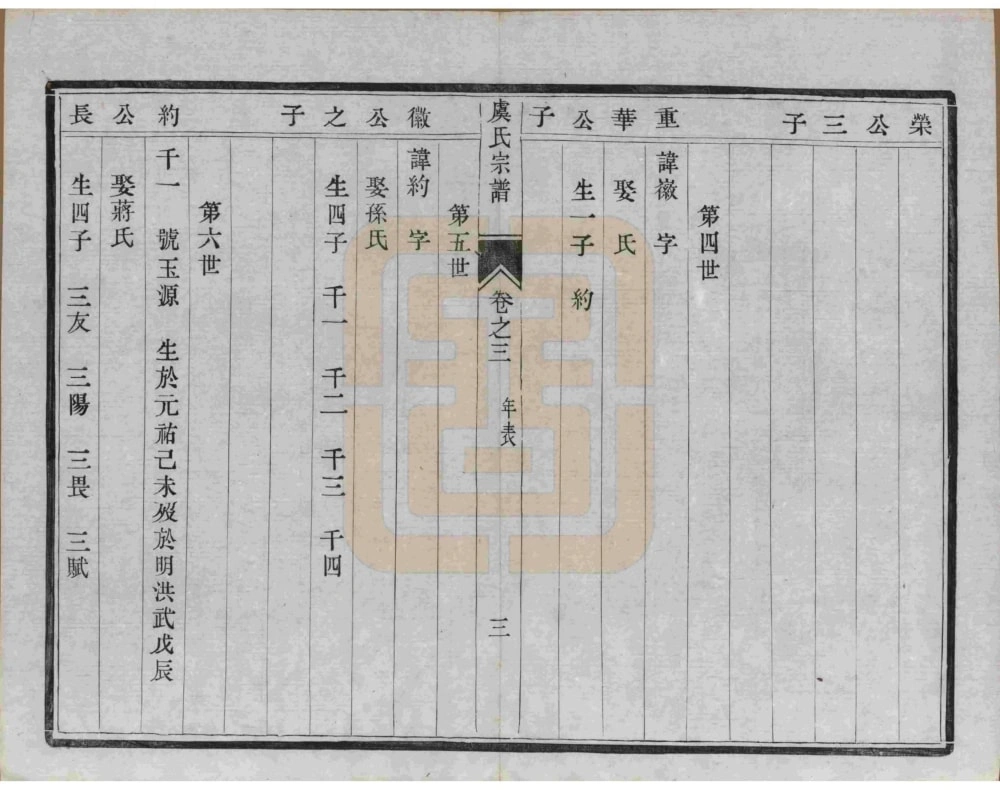 榮公三子
第四世
重華公子
諱徽 字
娶 氏
生一子 約
虞氏宗譜 卷之三 年表 三
第五世
徽公之子
諱約 字
娶孫氏
生四子 千一 千二 千三 千四
第六世
約公長
千一 號玉源 生於元祐己未歿於明洪武戊辰
娶蔣氏
生四子 三友 三陽 三畏 三賦